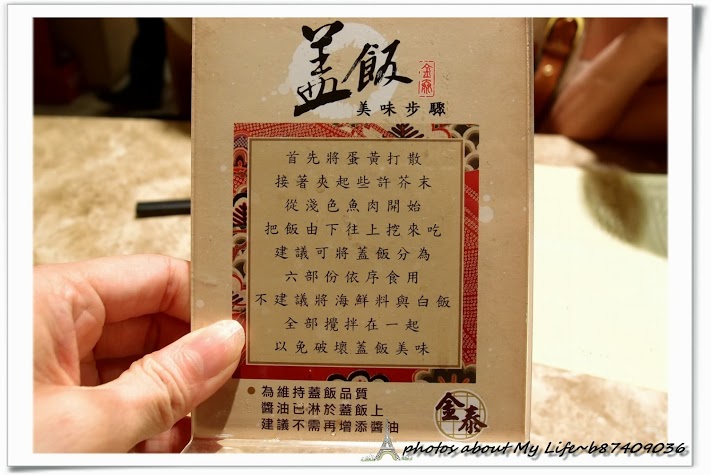 盖飯
金泰
美味步驟
首先將蛋黃打散
接著夾起些許芥末
從淺色魚肉開始
把飯由下往上挖來吃
建議可將蓋飯分為
六部份依序食用
不建議將海鮮料與白飯
全部攪拌在一起
以免破壞蓋飯美味
為維持蓋飯品質
醬油已淋於蓋飯上
建議不需再增添醬油
金泰
photos about My Life~b87409036